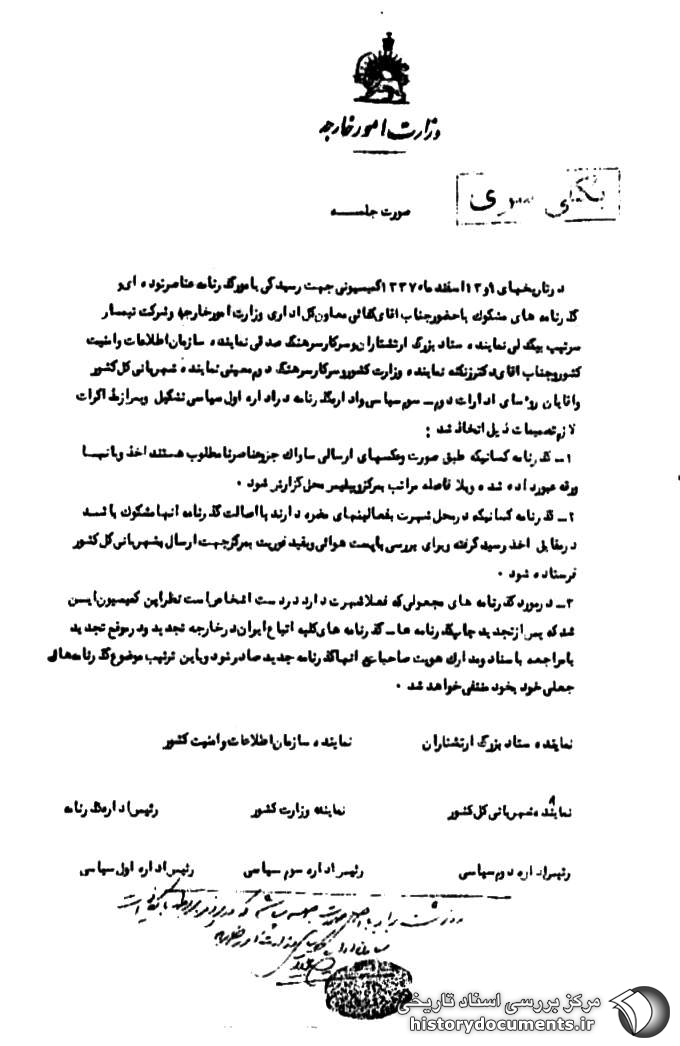 وزارت امور خارجه
بکلی سری
صورت جلسه
در تاریخهای ۹ و ۱۲ اسفند ماه ۱۳۳۷ کمیسیونی جهت رسیدگی بامور گذرنامه عناصر توده ای و
گذرنامه های مشکوك با حضور جناب اقای کفائی معاون کل اداری وزارت امور خارجه و شرکت تیمسار
سرتیپ بیگدلی نماینده ستاد بزرگ ارتشتاران و سرکار سرهنگ صدقی نماینده سازمان اطلاعات وامنیت
کشور و جناب اقای دکتر زنگنه نماینده وزارت کشور و سرکار سرهنگ دوم معینی نماینده شهربانی کل کشور
واقایان روسای ادارات دوم ـ سوم سیاسی و اداره گذرنامه در اداره اول سیاسی تشکیل و پس از مذاکرات
لازم تصمیمات ذیل اتخاذ شد :
۱ـ گذرنامه کسانیکه طبق صورت وعکسهای ارسالی ساواك جزو عناصر نامطلوب هستند اخذ و بانها
ورقه عبور داده شده و بلا فاصله مراتب بمرکز و پلیس محل گزارش شود ۰
۲ـ گذرنامه کسانیکه در محل شهرت بفعالیتهای مضره دارند یا اصالت گذرنامه انها مشکوك باشد
در مقابل اخذ رسید گرفته و برای بررسی با پست هوائی و بقید فوریت بمرکز جهت ارسال بشهربانی کل کشور
فرستاده شود ۰
۳ـ در مورد گذرنامه های مجعولی که فعلا شهرت دارد در دست اشخاص است نظر این کمیسیون این
شد که پس از تجدید چاپ گذرنامه ها ـ گذرنامه های کلیه اتباع ایران در خارجه تجدید و در موقع تجدید
با مراجعه باسناد ومدارك هویت صاحبان انها گذرنامه جدید صادر شود و باین ترتیب موضوع گذرنامه های
جعلی خود بخود منتفی خواهد شد ۰
نماینده ستاد بزرگ ارتشتاران نماینده سازمان اطلاعات وامنیت کشور
نماینده شهربانی کل کشور نماینده وزارت کشور رئیس اداره گذرنامه
رئیس اداره دوم سیاسی رئیس اداره سوم سیاسی رئیس اداره اول سیاسی
رونوشت برابر با اصل صورت جلسه
مرکز بررسی اسناد تاریخی
historydocuments.ir